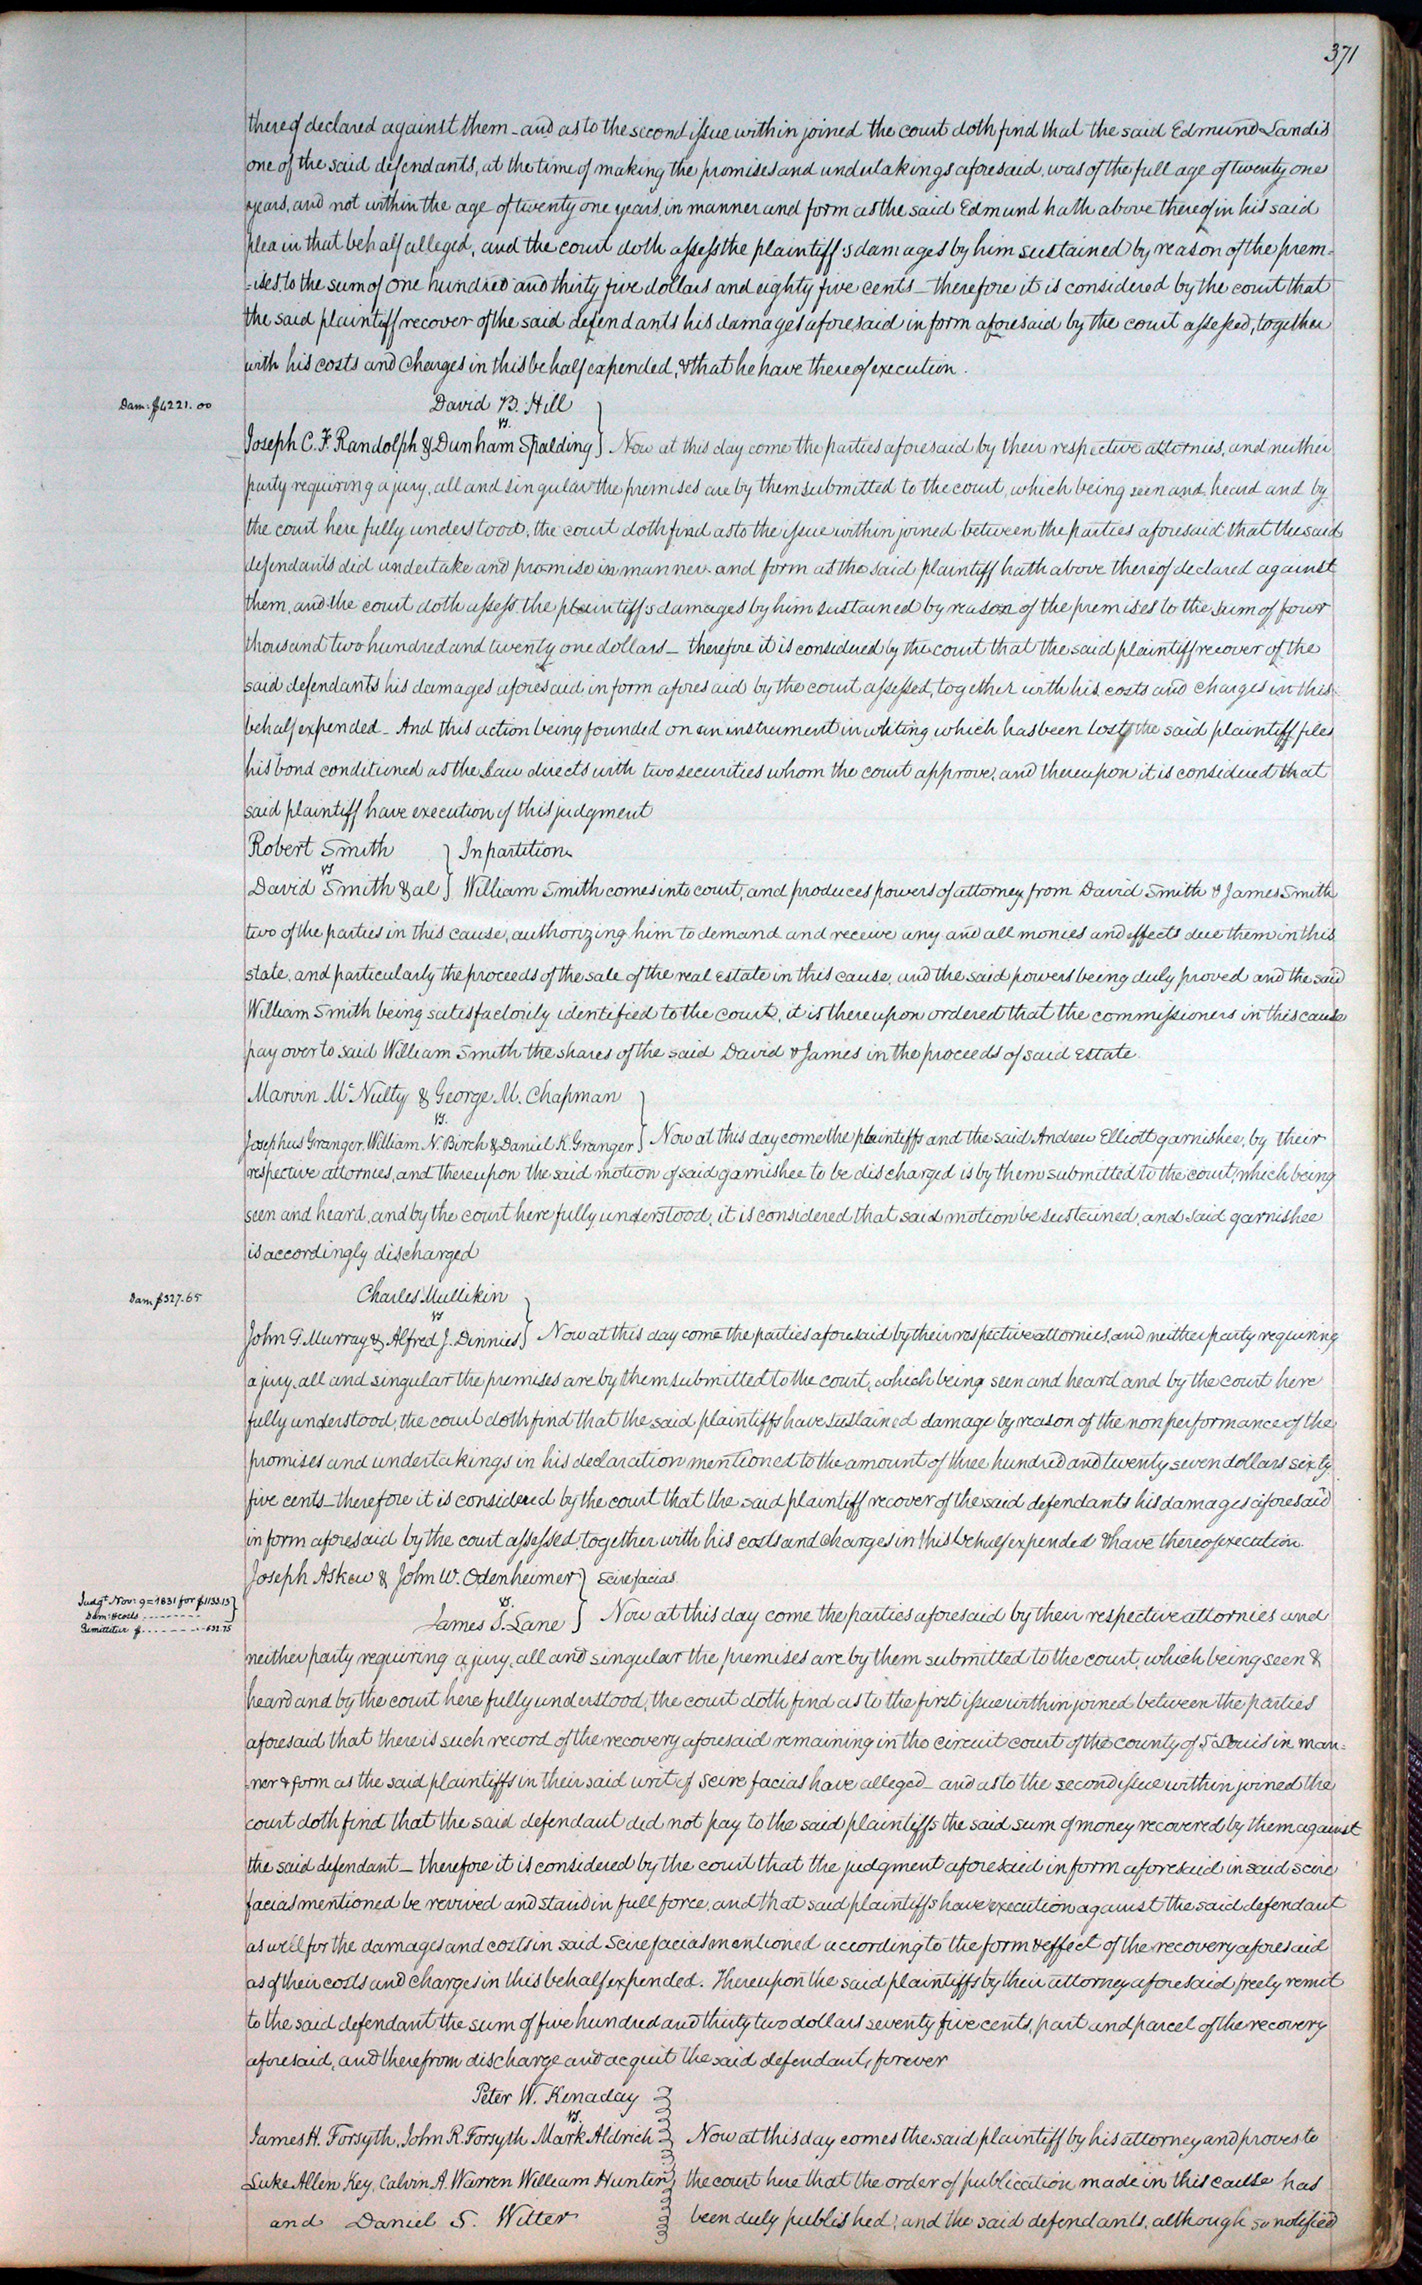 371
thereof declared against them - and as to the second issue within joined the court doth find that the said Edmund Landis
one of the said defendants, at the time of making the promises and undertakings aforesaid, was of the full age of twenty one
years, and not within the age of twenty one years, in manner and form as the said Edmund hath above thereof in his said
plea in that behalf alleged, and the court doth assess the plaintiff's damages by him sustained by reason of the prem-
-ises to the sum of One hundred and thirty five dollars and eighty five cents - therefore it is considered by the court that
the said plaintiff recover of the said defendants his damages aforesaid in form aforesaid by the court assessed, together
with his costs and charges in this behalf expended, & that he have thereof execution.
Dam: $4221.00
David B. Hill
vs.
Joseph C. F. Randolph & Dunham Spalding } Now at this day come the parties aforesaid by their respective attornies, and neither
party requiring a jury, all and singular the premises are by them submitted to the court, which being seen and heard and by
the court here fully understood, the court doth find as to the issue within joined between the parties aforesaid that the said
defendants did undertake and promise in manner and form as the said plaintiff hath above thereof declared against
them, and the court doth assess the plaintiff's damages by him sustained by reason of the premises to the sum of four
thousand two hundred and twenty one dollars - therefore it is considered by the court that the said plaintiff recover of the
said defendants his damages aforesaid in form aforesaid by the court assessed, together with his costs and charges in this
behalf expended - And this action being founded on an instrument in writing which has been lost, the said plaintiff files
his bond conditioned as the law directs with two securities whom the court approve, and thereupon it is considered that
said plaintiff have execution of this judgment
Robert Smith } In partition
vs
David Smith & al } William Smith comes into court, and produces powers of attorney from David Smith & James Smith
two of the parties in this cause, authorizing him to demand and receive any and all monies and effects due them in this
state, and particularly the proceeds of the sale of the real Estate in this cause, and the said powers being duly proved and the said
William Smith being satisfactorily identified to the court, it is thereupon ordered that the commissioners in this cause
pay over to said William Smith the shares of the said David & James in the proceeds of said Estate
Marvin McNulty & George M. Chapman
vs.
Josephus Granger, William N. Birch & Daniel K. Granger } Now at this day come the plaintiffs and the said Andrew Elliott garnishee, by their
respective attornies, and thereupon the said motion of said garnishee to be discharged is by them submitted to the court, which being
seen and heard, and by the court here fully understood, it is considered that said motion be sustained, and said garnishee
is accordingly discharged
Dam $327.65
Charles Mullikin
vs
John G. Murray & Alfred J. Dinnies } Now at this day come the parties aforesaid by their respective attornies, and neither party requiring
a jury, all and singular the premises are by them submitted to the court, which being seen and heard and by the court here
fully understood, the court doth find that the said plaintiffs have sustained damage by reason of the non performance of the
promises and undertakings in his declaration mentioned to the amount of three hundred and twenty seven dollars sixty
five cents - therefore it is considered by the court that the said plaintiff recover of the said defendants his damages aforesaid
in form aforesaid by the court assessed, together with his costs and charges in this behalf expended & have thereof execution
Joseph Askew & John W. Odenheimer } Scire facias
Judgt. Nov: 9=1831 for $1133.15
Dam: & costs
Remittitur $ 532.75
vs.
James S. Lane } Now at this day come the parties aforesaid by their respective attornies and
neither party requiring a jury, all and singular the premises are by them submitted to the court, which being seen &
heard and by the court here fully understood, the court doth find as to the first issue within joined between the parties
aforesaid that there is such record of the recovery aforesaid remaining in the circuit court of the county of St Louis in man-
-ner & form as the said plaintiffs in their said writ of Scire facias have alleged - and as to the second issue within joined the
court doth find that the said defendant did not pay to the said plaintiffs the said sum of money recovered by them against
the said defendant - therefore it is considered by the court that the judgment aforesaid in form aforesaid in said scire
facias mentioned be revived and stand in full force, and that said plaintiffs have execution against the said defendant
as well for the damages and costs in said Scire facias mentioned according to the form & effect of the recovery aforesaid
as of their costs and charges in this behalf expended. Thereupon the said plaintiffs by their attorney aforesaid freely remit
to the said defendant the sum of five hundred and thirty two dollars seventy five cents, part and parcel of the recovery
aforesaid, and therefrom discharge and acquit the said defendant, forever
Peter W. Kenaday
vs.
James H. Forsyth, John R. Forsyth Mark Aldrich Now at this day comes the said plaintiff by his attorney and proves to
Luke Allen Key, Calvin A. Warren William Hunter the court here that the order of publication made in this cause has
and Daniel S. Witter been duly published, and the said defendants, although so notified